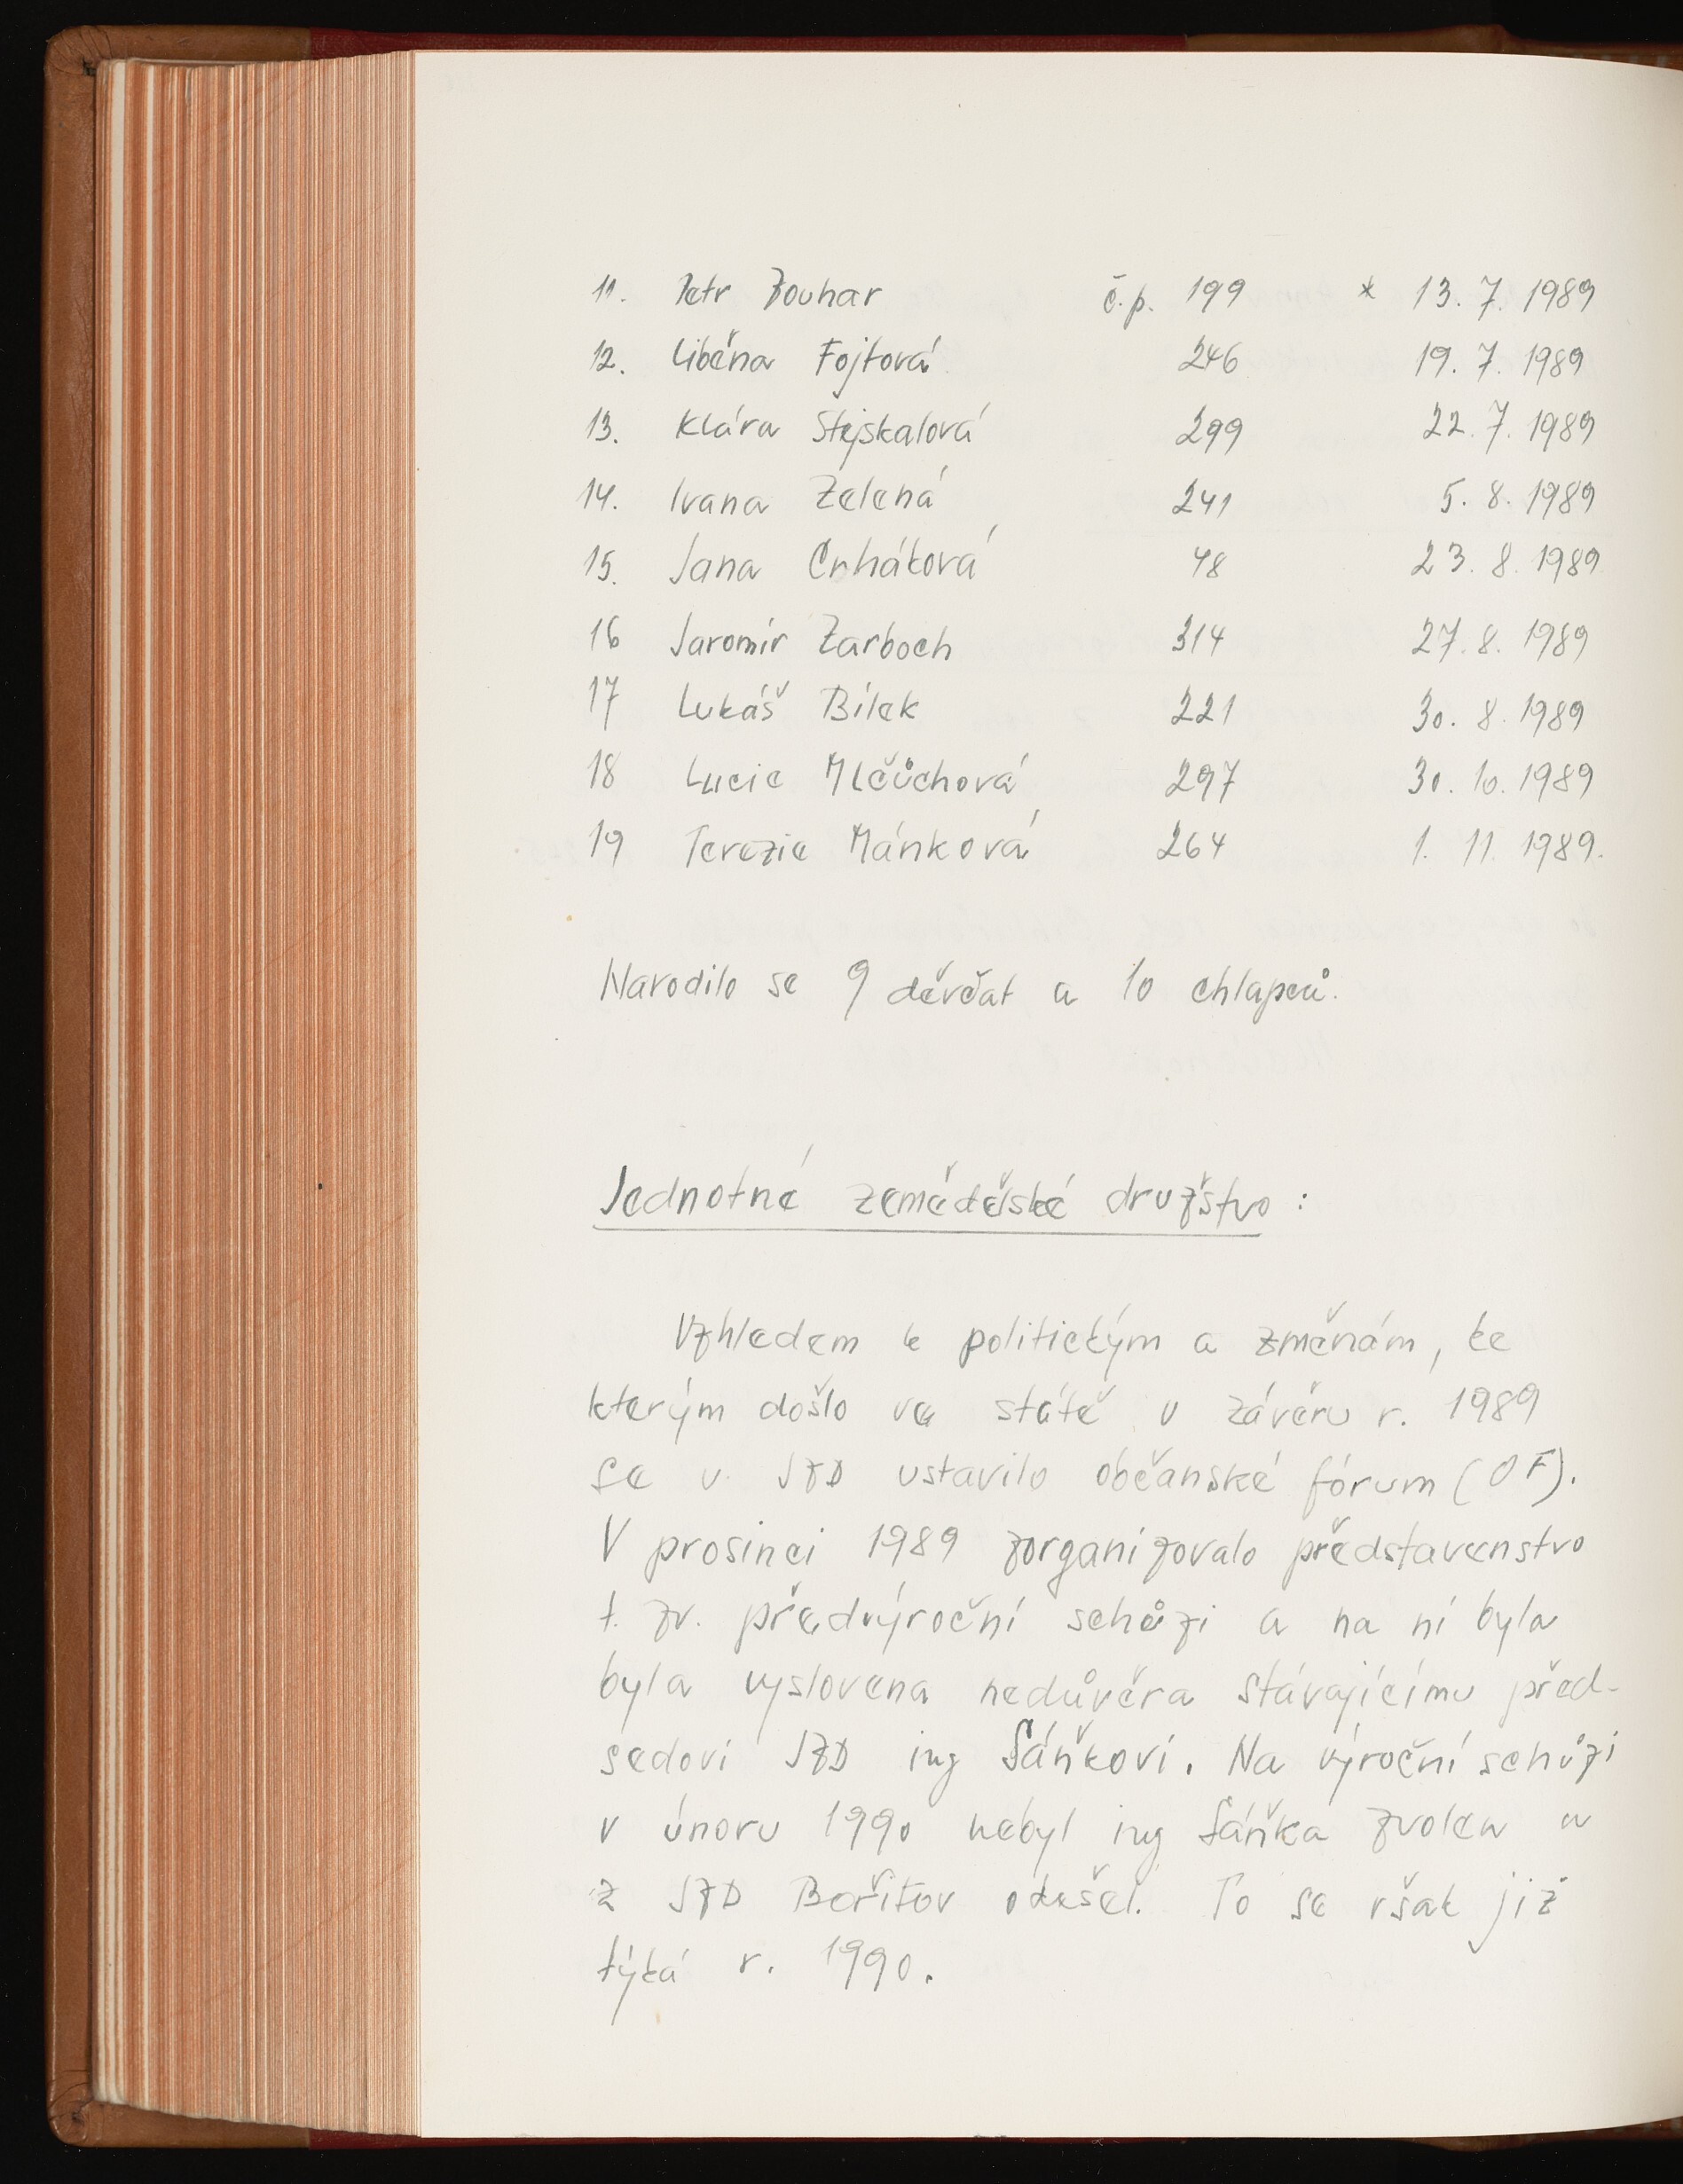 11. Petr Zouhar č.p. 199 * 13. 7. 1989
12. Liběna Fojtová 246 19. 7. 1989
13. Klára Stejskalová 299 22. 7. 1989
14. Ivana Zelená 241 5. 8. 1989
15. Jana Crháková 48 23. 8. 1989
16 Jaromír Zarboch 314 27. 8. 1989
17 Lukáš Bílek 221 30. 8. 1989
18 Lucie Mlčůchová 297 30. 10. 1989
19 Terezie Mánková 264 1. 11. 1989.
Narodilo se 9 děvčat a 10 chlapců.
Jednotné zemědělské družstvo :
Vzhledem k politickým a změnám, ke
kterým došlo ve státě v závěru r. 1989
se v JZD ustavilo občanské fórum (OF).
V prosinci 1989 zorganizovalo představenstvo
t. zv. předvýroční schůzi a na ní byla
byla vyslovena nedůvěra stávajícímu před-
sedovi JZD ing Sáňkovi. Na výroční schůzi
v únoru 1990 nebyl ing Sáňka zvolen a
z JZD Bořitov odešel. To se však již
týká r. 1990.